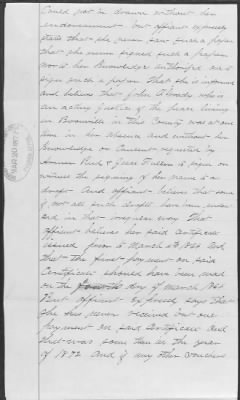 Could not be drawn without her
endorsement but affiant expressly
states that she never saw such a paper
that she never signed such a paper
nor is her knowledge authorize any to
sign such a paper That she is informed
and believes that John Grady who is
an acting Justice of the peace living
in Booneville in this County was at one
time in her absence and without her
knowledge or Consent requested by
& Jesse Fuller to sign or
witness the signing of her name to a
draft And affiant believes that some
if not all such drafts have been endor
sed in that irregular way That
affiant believes her said Certificate
issued prior to March 4, 1866 And
that the first payment on said
Certificate should have been made
on the fourth day of March 1861
But affiant further says that
she has never received but one
payment on said Certificate And
that was some time in the year
of 1872 And if any other vouchers
MAR 20 1877